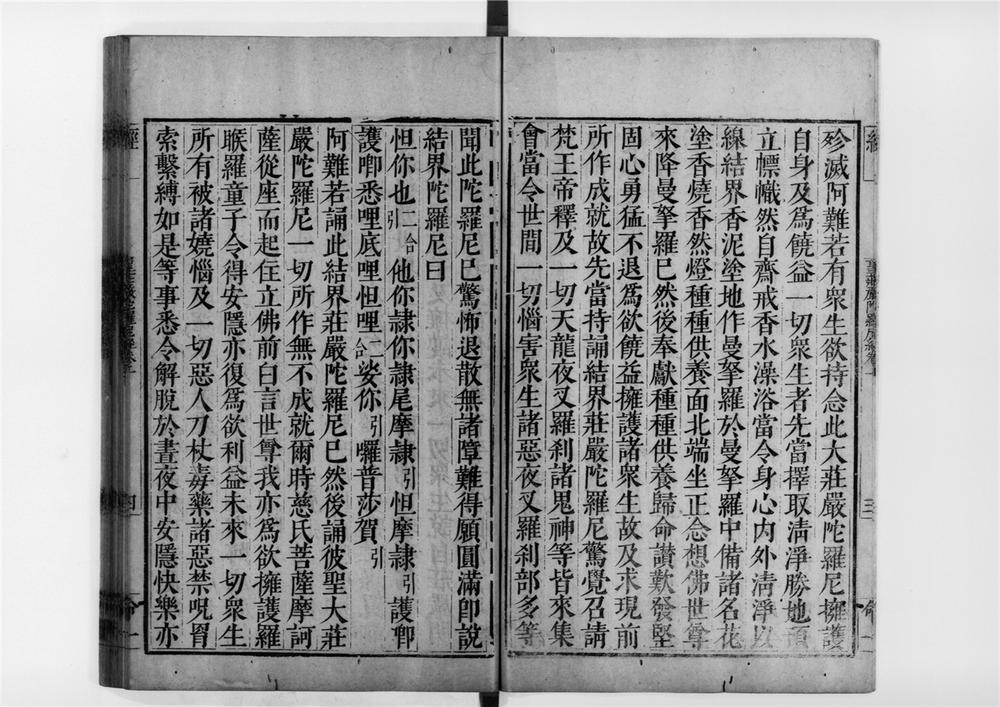 殄滅阿難若有衆生欲持念此大莊嚴陀羅尼擁護
自身及爲饒益一切衆生者先當擇取淸淨勝地須
立幖幟然自齋戒香水澡浴當令身心內外淸淨以
線結界香泥塗地作曼拏羅於曼拏羅中備諸名花
塗香燒香然燈種種供養面北端坐正念想佛世尊
來降曼拏羅已然後奉獻種種供養歸命讃歎發堅
固心勇猛不退爲欲饒益擁護諸衆生故及求現前
所作成就故先當持誦結界莊嚴陀羅尼驚覺召請
梵王帝釋及一切天龍夜叉羅刹諸鬼神等皆來集
會當令世間一切惱害衆生諸惡夜叉羅刹部多等
聞此陀羅尼已驚怖退散無諸障難得願圓滿卽說
結界陀羅尼曰
怛你也二合引他你隷你隷尾摩隷引怛摩隷引護鄕
護唧悉哩底哩怛哩二合娑你引囉普莎賀引
阿難若誦此結界莊嚴陀羅尼已然後誦彼聖大莊
嚴陀羅尼一切所作無不成就爾時慈氏菩薩摩訶
薩從座而起住立佛前白言世尊我亦爲欲擁護羅
睺羅童子令得安隱亦復爲欲利益未來一切衆生
所有被諸嬈惱及一切惡人刀杖毒藥諸惡禁呪罥
索繫縛如是等事悉令解脫於晝夜中安隱快樂亦
經
四